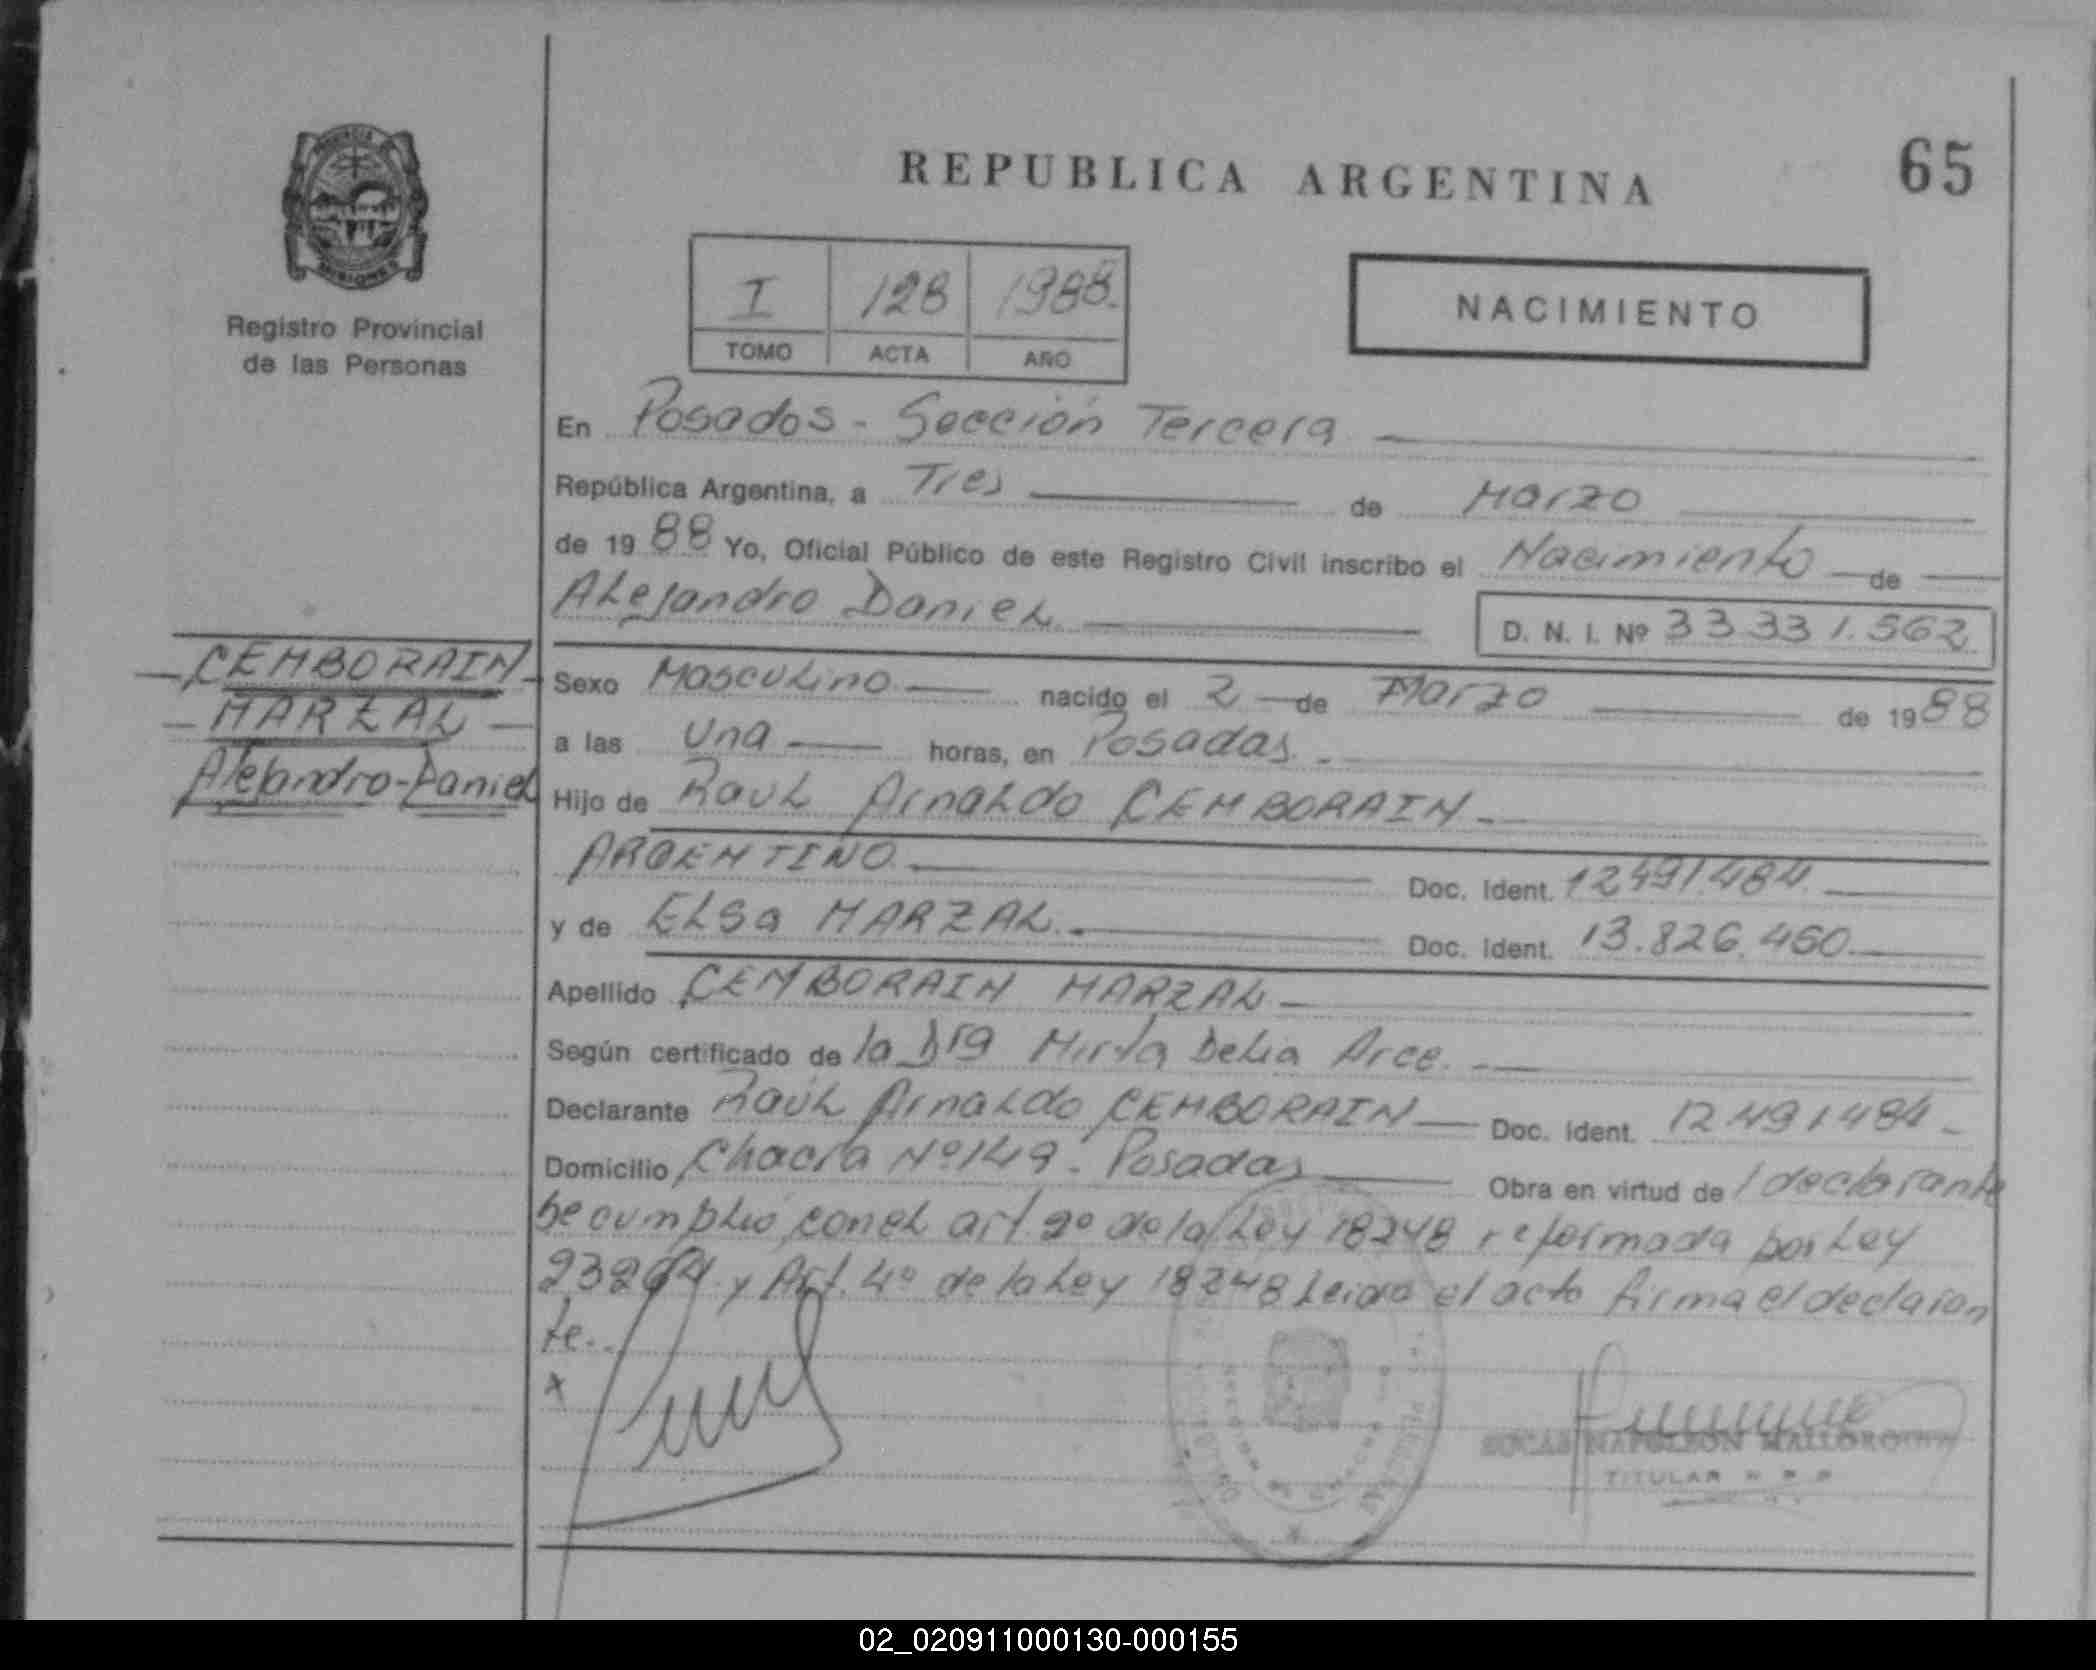 REPUBLICA ARGENTINA
65
PROVINCIA
MISIONES
Registro Provincial
de las Personas
I 128 1988.
TOMO ACTA AÑO
NACIMIENTO
En Posadas - Sección Tercera
República Argentina, a Tres de Marzo
de 1988 Yo, Oficial Público de este Registro Civil inscribo el Nacimiento de
Alejandro Daniel D. N. I. Nº 33 33 1.562
CEMBORAIN
MARZAL
Alejandro-Daniel
Sexo Masculino nacido el 2 de Marzo de 1988
a las Una horas, en Posadas.
Hijo de Raul Arnaldo CEMBORAIN
ARGENTINO Doc. Ident. 12491.484
y de ELSa MARZAL Doc. Ident. 13.826.460
Apellido CEMBORAIN MARZAL
Según certificado de la Dra Mirta Delia Arce.
Declarante Raúl Arnaldo CEMBORAIN Doc. Ident. 12 491484
Domicilio Chacra Nº 149. Posadas Obra en virtud de l declarante
Se cumplió con el art. 2º de la Ley 18248 reformada por Ley
23264 y Art. 4º de la Ley 18248 Leida el acta firma el declaran
te.
x
NAPOLEON
TITULAR
02_020911000130-000155